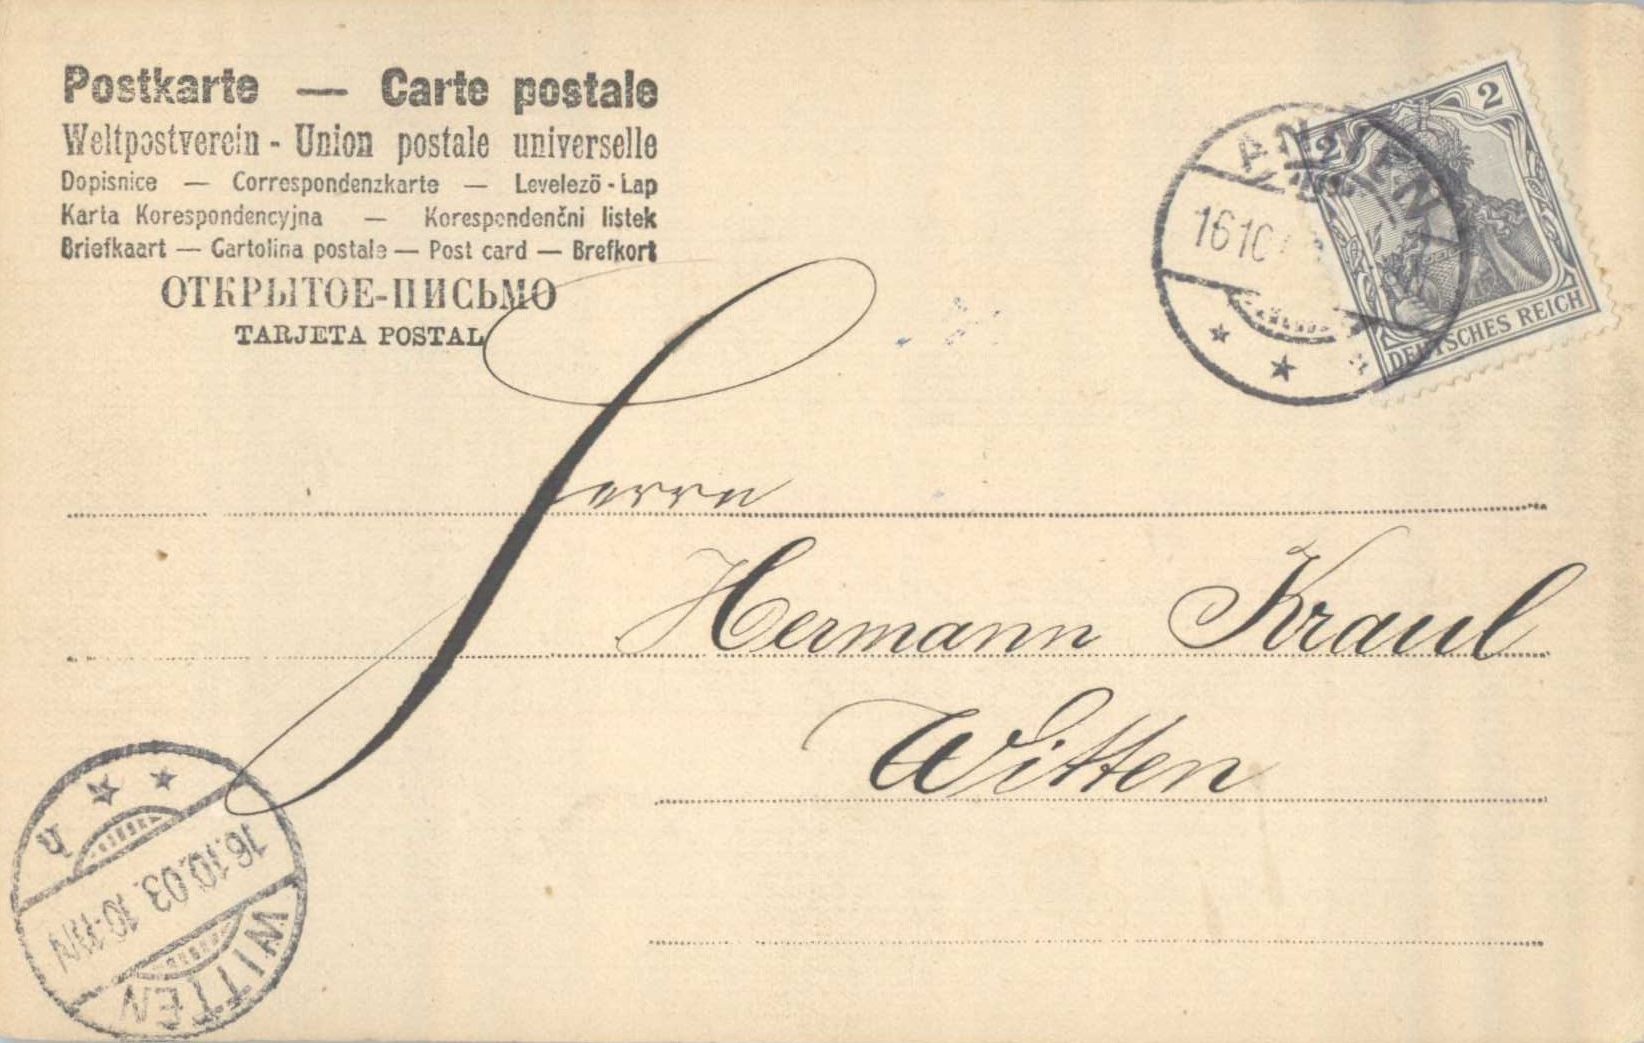 Postkarte — Carte postale
Weltpostverein - Union postale universelle
Dopisnice — Correspondenzkarte — Levelező-Lap
Karta Korespondencyjna — Korespondenčni listek
Briefkaart — Cartolina postale — Post card — Brefkort
ОТКРЫТОЕ-ПИСЬМО
TARJETA POSTAL
2 2
DEUTSCHES REICH
16 10
Herrn
Hermann Kraul
Witten
WITTEN
16.10.03. 10-11N